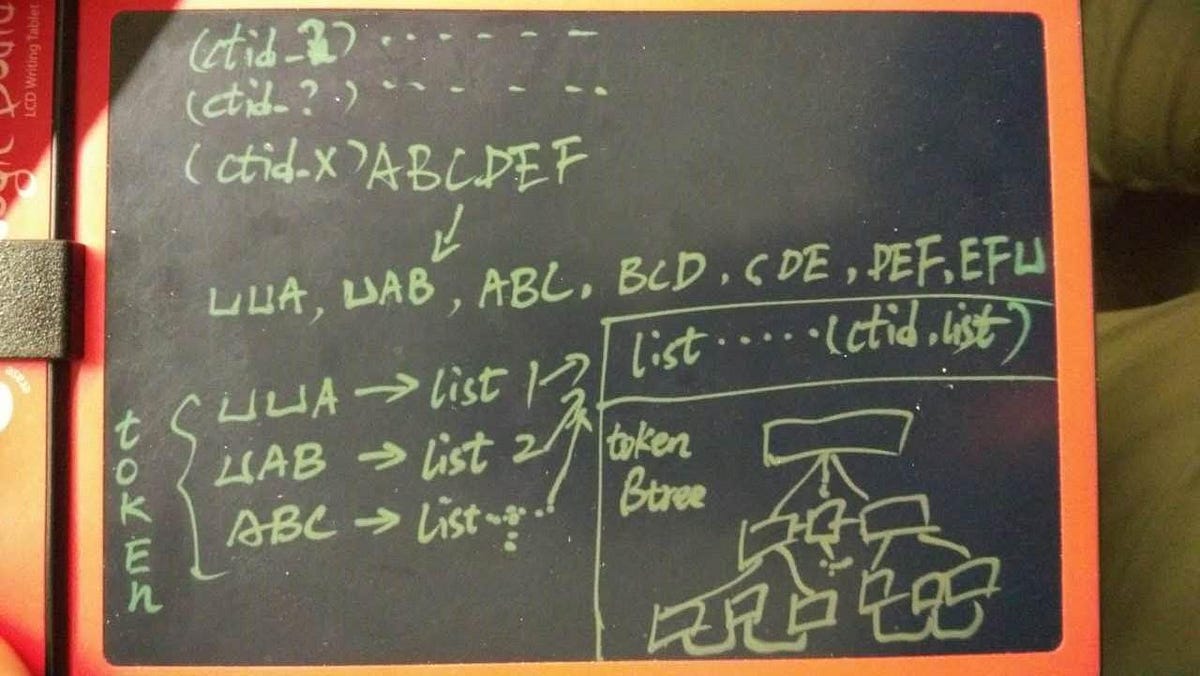 LCD Writing Tablet
(ctid-2) ·· - - - -
(ctid-?) ·· - - - ··
(ctid-X) ABCDEF
⊔⊔A, ⊔AB, ABC, BCD, CDE, DEF, EF⊔
list ····· (ctid,list)
token
Btree
TOKEN
⊔⊔A → list 1 →
⊔AB → list 2
ABC → list ···